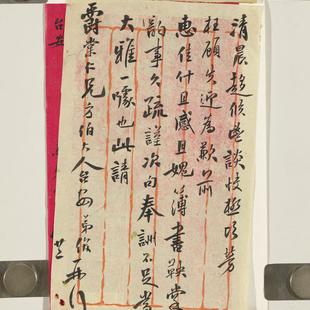 清晨趨候邕談快極頃勞
枉顧失迎為歉承
惠佳什且感且媿簿書鞅掌
韵事久疏謹次句奉詶不足當
大雅一噱也此請
爵棠仁兄方伯大人台安 弟
台安